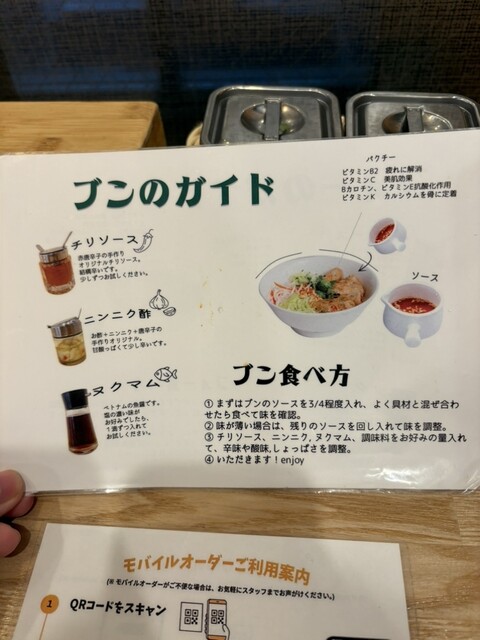 ブンのガイド
パクチー
ビタミンB2 疲れに解消
ビタミンC 美肌効果
Bカロチン、ビタミンE抗酸化作用
ビタミンK カルシウムを骨に定着
チリソース
赤唐辛子の手作り
オリジナルチリソース。
結構辛いです。
少しずつお試しください。
ニンニク酢
お酢+ニンニク+唐辛子の
手作りオリジナル。
甘酸っぱくて少し辛いです。
ヌクマム
ベトナムの魚醤です。
塩の濃い味が
お好みでしたら、
1滴ずつ入れて
お試しください。
ソース
ブン食べ方
① まずはブンのソースを3/4程度入れ、よく具材と混ぜ合わ
せたら食べて味を確認。
② 味が薄い場合は、残りのソースを回し入れて味を調整。
③ チリソース、ニンニク, ヌクマム、調味料をお好みの量入れ
て、辛味や酸味,しょっぱさを調整。
④ いただきます!enjoy
モバイルオーダーご利用案内
(※ モバイルオーダーがご不便な場合は、お気軽にスタッフまでお声がけください。)
1 QRコードをスキャン